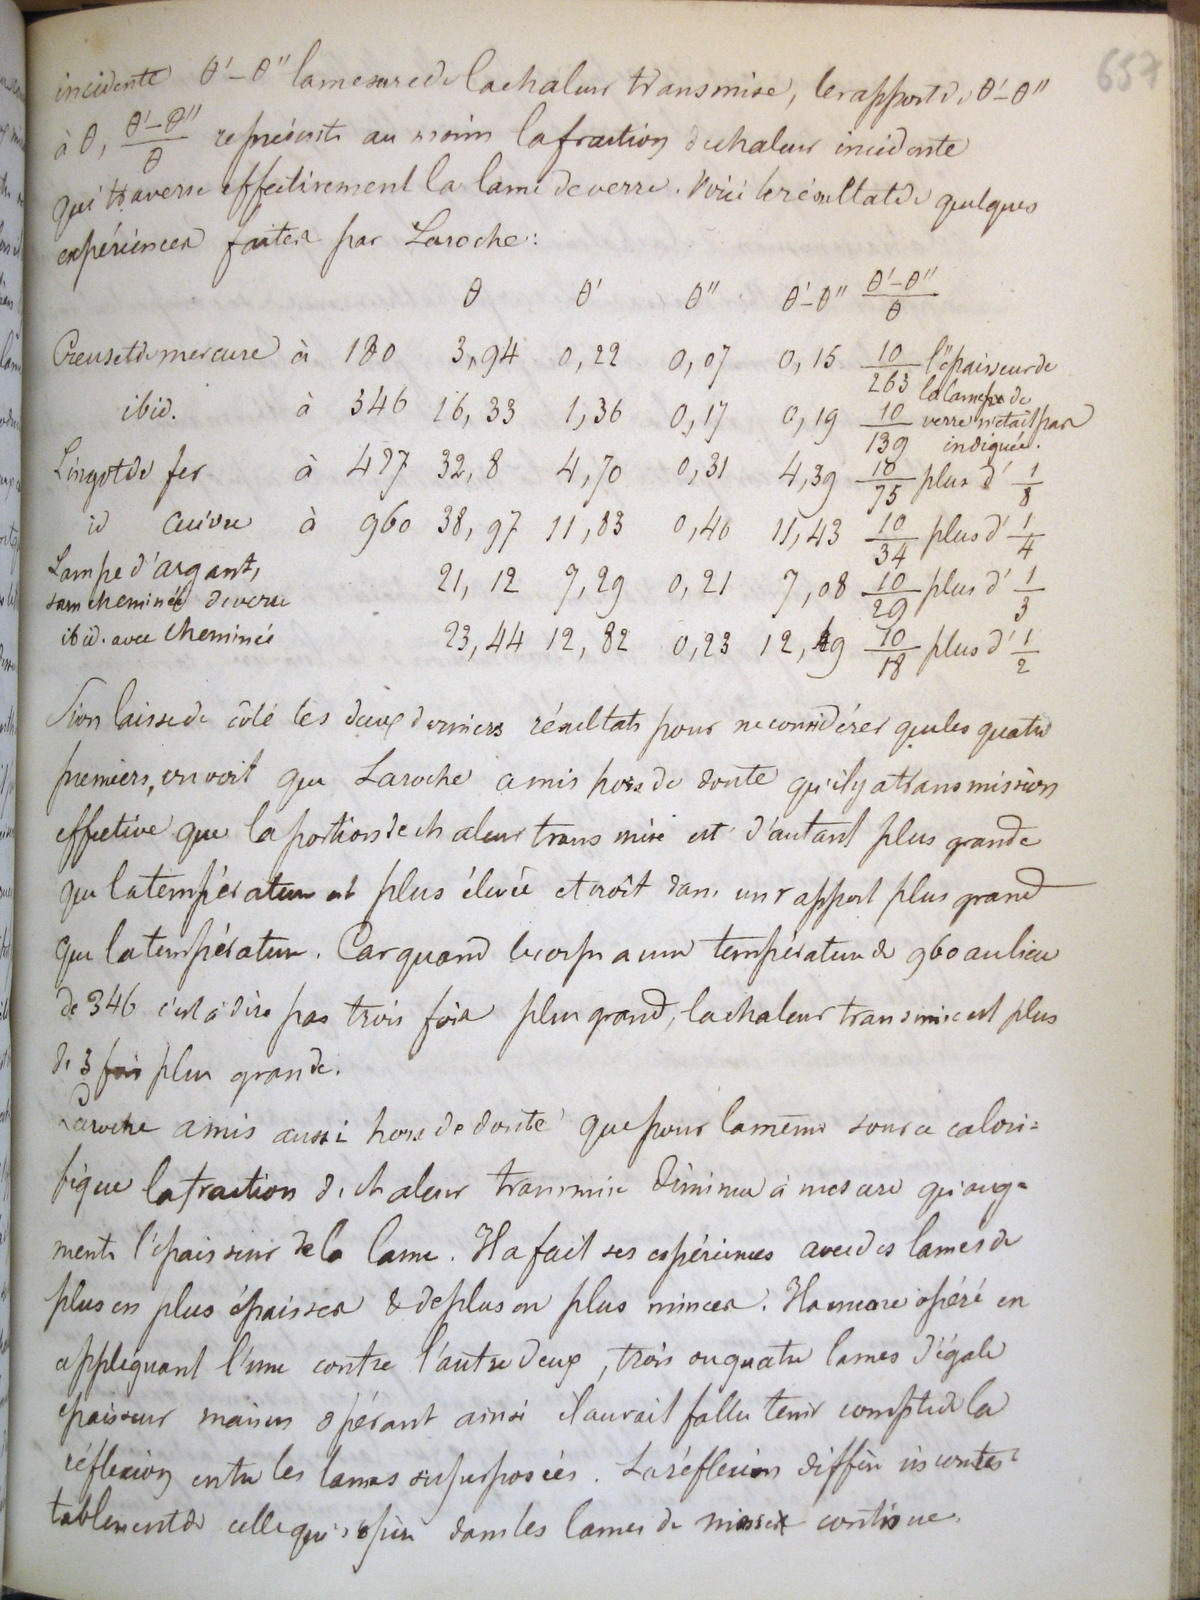 657
incidente θ'–θ" la mesure de la chaleur transmise, le rapport de θ'–θ"
à θ, θ'–θ"/θ représente au moins la fraction de chaleur incidente
qui traverse effectivement la lame de verre. Voici le résultat de quelques
expériences faites par Laroche:
θ θ' θ" θ'–θ" θ'–θ"/θ
Creuset de mercure à 180 3,94 0,22 0,07 0,15 10/263 l'épaisseur de
la lame de
ibid. à 346 16,33 1,36 0,17 0,19 10/139 verre n'était pas
indiquée.
Lingot de fer à 427 32,8 4,70 0,31 4,39 10/75 plus d' 1/8
id cuivre à 960 38,97 11,83 0,40 11,43 10/34 plus d' 1/4
Lampe d'argant,
sans cheminée de verre 21,12 7,29 0,21 7,08 10/29 plus d' 1/3
ibid. avec cheminée 23,44 12,82 0,23 12,49 10/18 plus d' 1/2
Si on laisse de côté les deux derniers résultats pour ne considérer que les quatre
premiers, on voit que Laroche a mis hors de doute qu'il y a transmission
effective que la portion de chaleur transmise est d'autant plus grande
que la température est plus élevée et croît dans un rapport plus grand
que la température. Car quand le corps a une température de 960 au lieu
de 346 c'est à dire pas trois fois plus grand, la chaleur transmise est plus
de 3 fois plus grande.
Laroche a mis aussi hors de doute que pour la même source calori=
fique la fraction de chaleur transmise diminue à mesure qu'aug=
mente l'épaisseur de la lame. Il a fait ses expériences avec des lames de
plus en plus épaisses & de plus en plus minces. Il a encore opéré en
appliquant l'une contre l'autre deux, trois ou quatre lames d'égale
épaisseur mais en opérant ainsi il aurait fallu tenir compte de la
réflexion entre les lames superposées. La réflexion diffère incontes=
tablement de celle qui s'opère dans les lames de masse continue.